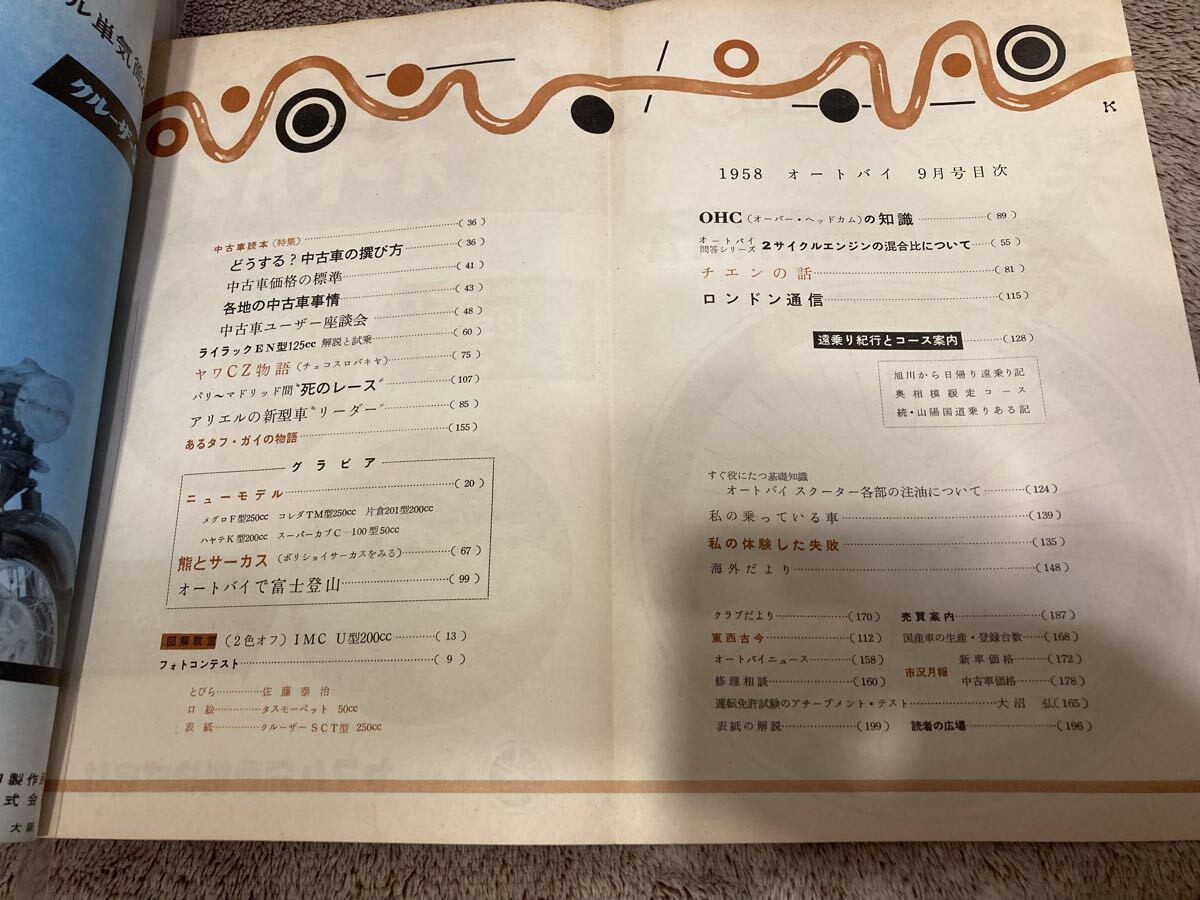 ル単気筒
クルーザー
製作所
式会
大阪
K
1958 オートバイ 9月号目次
中古車読本(特集)……(36)
どうする?中古車の撰び方……(36)
中古車価格の標準……(41)
各地の中古車事情……(43)
中古車ユーザー座談会……(48)
ライラックEN型125cc 解説と試乗……(60)
ヤワCZ物語(チェコスロバキヤ)……(75)
パリ〜マドリッド間〝死のレース〟……(107)
アリエルの新型車〝リーダー〟……(85)
あるタフ・ガイの物語……(155)
グラビア
ニューモデル……(20)
メグロF型250cc コレダTM型250cc 片倉201型200cc
ハヤテK型200cc スーパーカブC-100型50cc
熊とサーカス(ボリショイサーカスをみる)……(67)
オートバイで富士登山……(99)
図解教室(2色オフ)IMC U型200cc……(13)
フォトコンテスト……(9)
とびら……佐藤泰治
口絵……タスモーペット 50cc
表紙……クルーザーSCT型 250cc
OHC(オーバー・ヘッドカム)の知識……(89)
オートバイ問答シリーズ 2サイクルエンジンの混合比について……(55)
チエンの話……(81)
ロンドン通信……(115)
遠乗り紀行とコース案内……(128)
旭川から日帰り遠乗り記
奥相模緩走コース
続・山陽国道乗りある記
すぐ役にたつ基礎知識
オートバイ スクーター各部の注油について……(124)
私の乗っている車……(139)
私の体験した失敗……(135)
海外だより……(148)
クラブだより……(170)
東西古今……(112)
オートバイニュース……(158)
修理相談……(160)
売買案内……(187)
国産車の生産・登録台数……(168)
市況月報
新車価格……(172)
中古車価格……(178)
運転免許試験のアチーブメント・テスト……大沼 弘(165)
表紙の解説……(199)
読者の広場……(196)